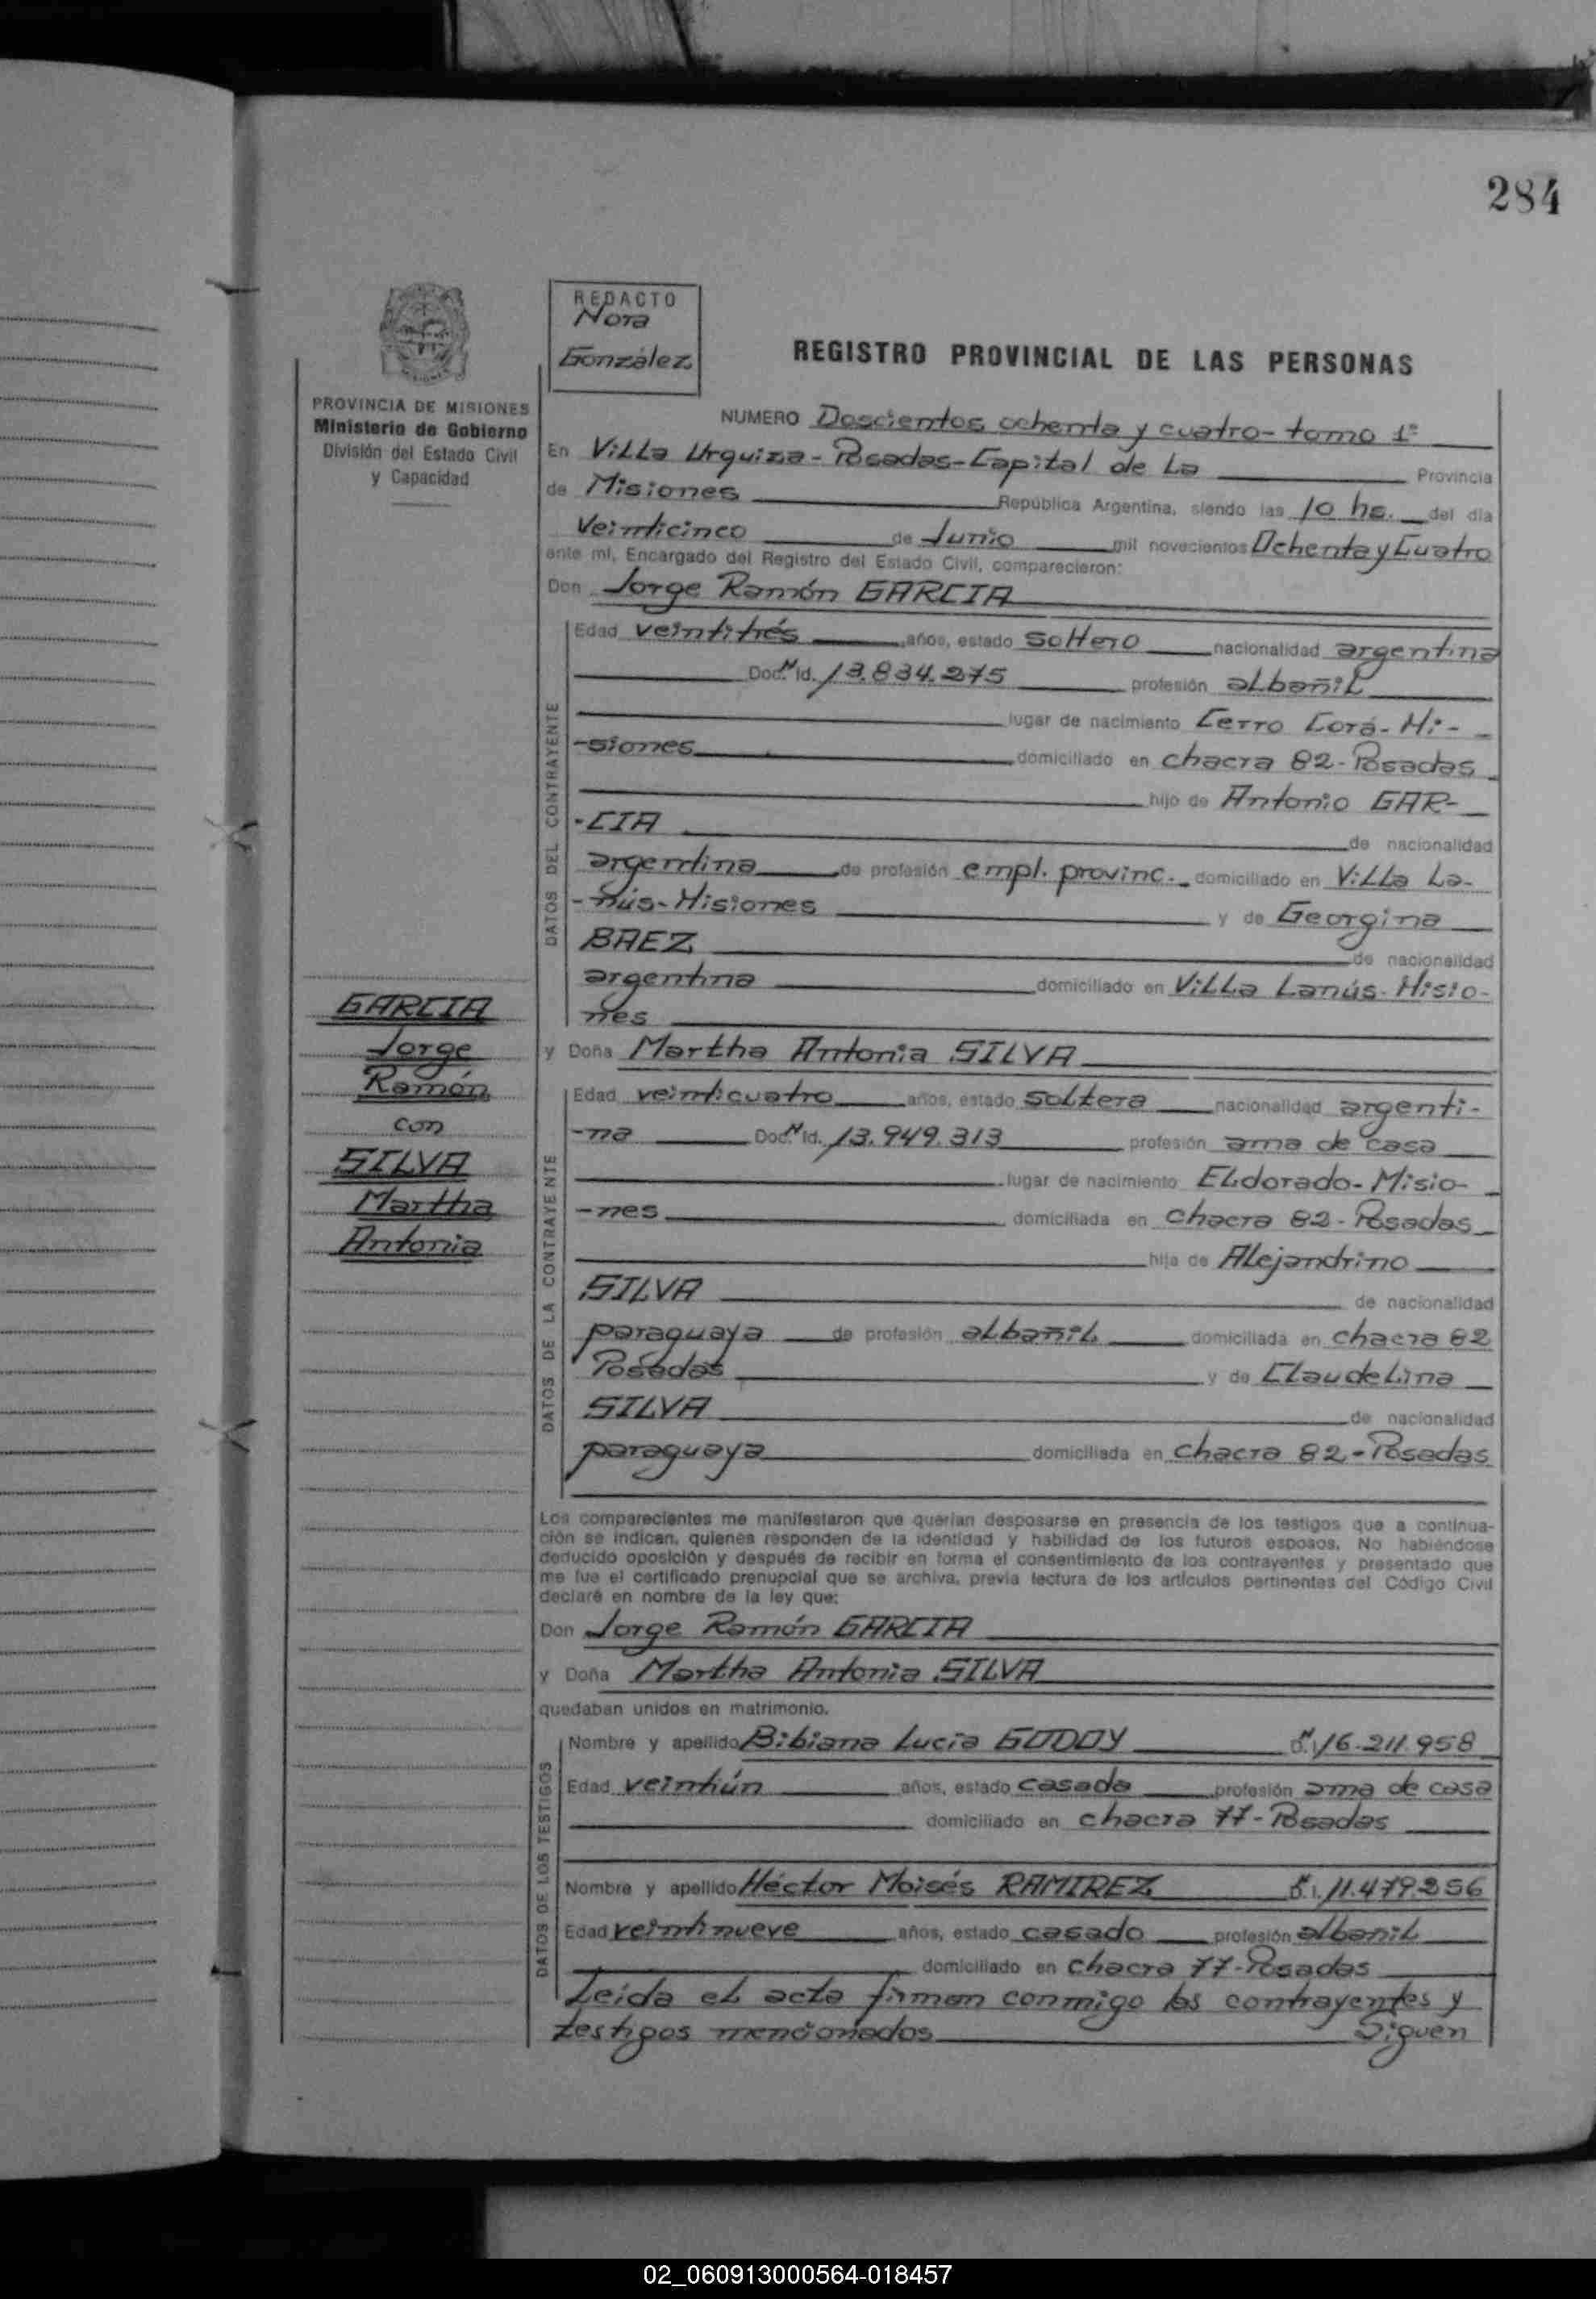 284
REDACTO
Nora
González
REGISTRO PROVINCIAL DE LAS PERSONAS
PROVINCIA DE MISIONES
Ministerio de Gobierno
División del Estado Civil
y Capacidad
NUMERO Doscientos ochenta y cuatro- tomo 1º
En Villa Urquiza - Posadas - Capital de La Provincia
de Misiones República Argentina, siendo las 10 hs. del día
Veinticinco de Junio mil novecientos Ochenta y Cuatro
ante mí, Encargado del Registro del Estado Civil, comparecieron:
Don Jorge Ramón GARCIA
DATOS DEL CONTRAYENTE
Edad veintitrés años, estado soltero nacionalidad argentina
Doc. N Id. 13.834.275 profesión albañil
lugar de nacimiento Cerro Corá- Mi-
-siones domiciliado en chacra 82- Posadas
hijo de Antonio GAR-
-CIA de nacionalidad
argentina de profesión empl. provinc. domiciliado en Villa La-
-nús- Misiones y de Georgina
BAEZ de nacionalidad
argentina domiciliado en Villa Lanús- Misio-
nes
GARCIA
Jorge
Ramón
con
SILVA
Martha
Antonia
y Doña Martha Antonia SILVA
DATOS DE LA CONTRAYENTE
Edad veinticuatro años, estado soltera nacionalidad argenti-
-na Doc. N Id. 13.949.313 profesión ama de casa
lugar de nacimiento Eldorado- Misio-
-nes domiciliada en chacra 82- Posadas
hija de Alejandrino
SILVA de nacionalidad
paraguaya de profesión albañil domiciliada en chacra 82
Posadas y de Claudelina
SILVA de nacionalidad
paraguaya domiciliada en chacra 82- Posadas
Los comparecientes me manifestaron que querían desposarse en presencia de los testigos que a continua-
ción se indican, quienes responden de la identidad y habilidad de los futuros esposos. No habiéndose
deducido oposición y después de recibir en forma el consentimiento de los contrayentes y presentado que
me fue el certificado prenupcial que se archiva, previa lectura de los artículos pertinentes del Código Civil
declaré en nombre de la ley que:
Don Jorge Ramón GARCIA
y Doña Martha Antonia SILVA
quedaban unidos en matrimonio.
DATOS DE LOS TESTIGOS
Nombre y apellido Bibiana Lucía GODOY 16.211.958
Edad veintiún años, estado casada profesión ama de casa
domiciliado en chacra 77- Posadas
Nombre y apellido Héctor Moisés RAMIREZ 11.479.256
Edad veintinueve años, estado casado profesión albañil
domiciliado en chacra 77- Posadas
Leída el acta firman conmigo los contrayentes y
testigos mencionados Siguen
02_060913000564-018457